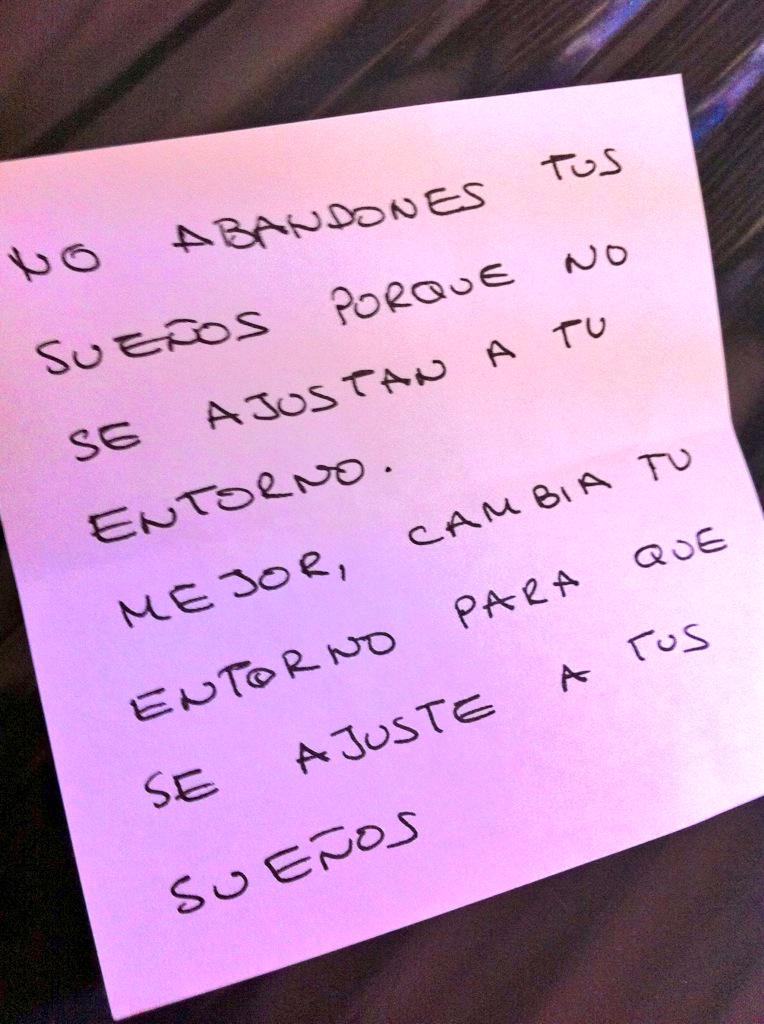 NO ABANDONES TUS
SUEÑOS PORQUE NO
SE AJUSTAN A TU
ENTORNO.
MEJOR, CAMBIA TU
ENTORNO PARA QUE
SE AJUSTE A TUS
SUEÑOS